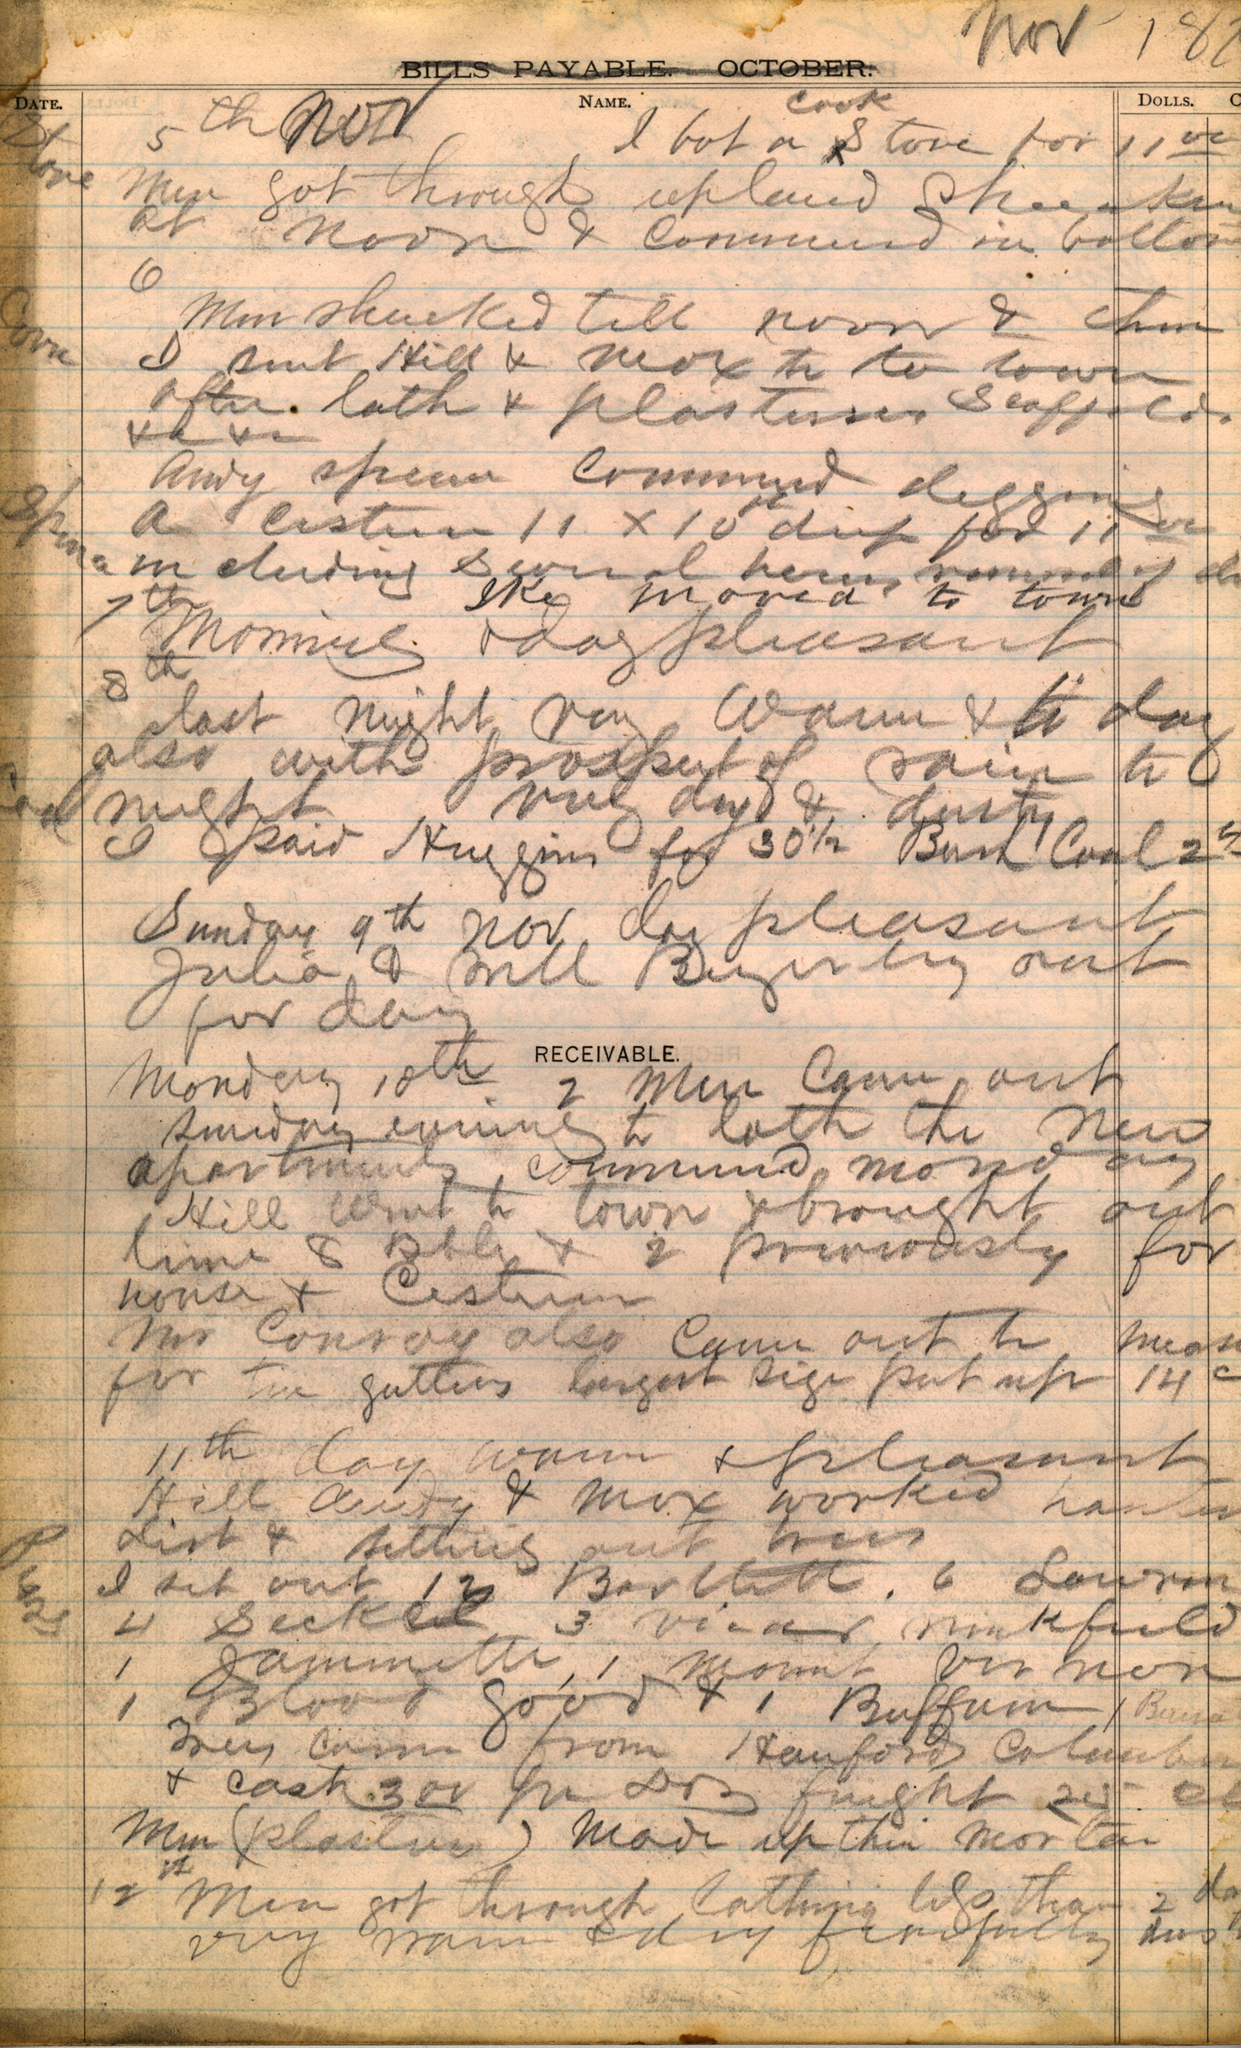 Nov 187
BILLS PAYABLE. OCTOBER.
DATE. NAME. DOLLS. C
Stove 5th Nov I bot a Cook Stove for 11 00
Men got through upland
at Noon & Commencd in bottom
6
Corn Men shucked till noon & then
I sent Hill & Mox to to town
after lath & plasterers Scaffold
&c &c
Andy Commencd digging
a Cestern 11 x 10 ft deep for 11 00
including Several
7th Ike moved to town
Morning & day pleasant
8th
last night very Warm & to day
also with prospect of rain to
Coal night very dry & dusty
I paid Huggins for 30 1/2 Bush Coal 2
Sunday 9th Nov day pleasant
Julia & Will out
for day
RECEIVABLE.
Monday 10th 2 Men Came out
Sunday evening to lath the New
apartments, commencd monday
Hill Went to town & brought out
lime 8 Bbls & 2 previously for
house & Cestern
Mr Conroy also Came out to meas
for tin gutters largest size put up 14 c
11th day warm & pleasant
Hill Andy & Mox worked
dirt & setting out trees
Pears I set out 12 Bartlett. 6 Lawren
4 Seckel 3 vicar winkfield
1 Jaminette, 1 Mount Vernon
1 Blood good & 1 Buffum 1
Trees came from Hanfords Columbus
& cash 3 00 per Doz freight 25
Men (plasterers) Made up their Mortar
12th Men got through lathing less than 2 da
very warm & dry fearfully dus